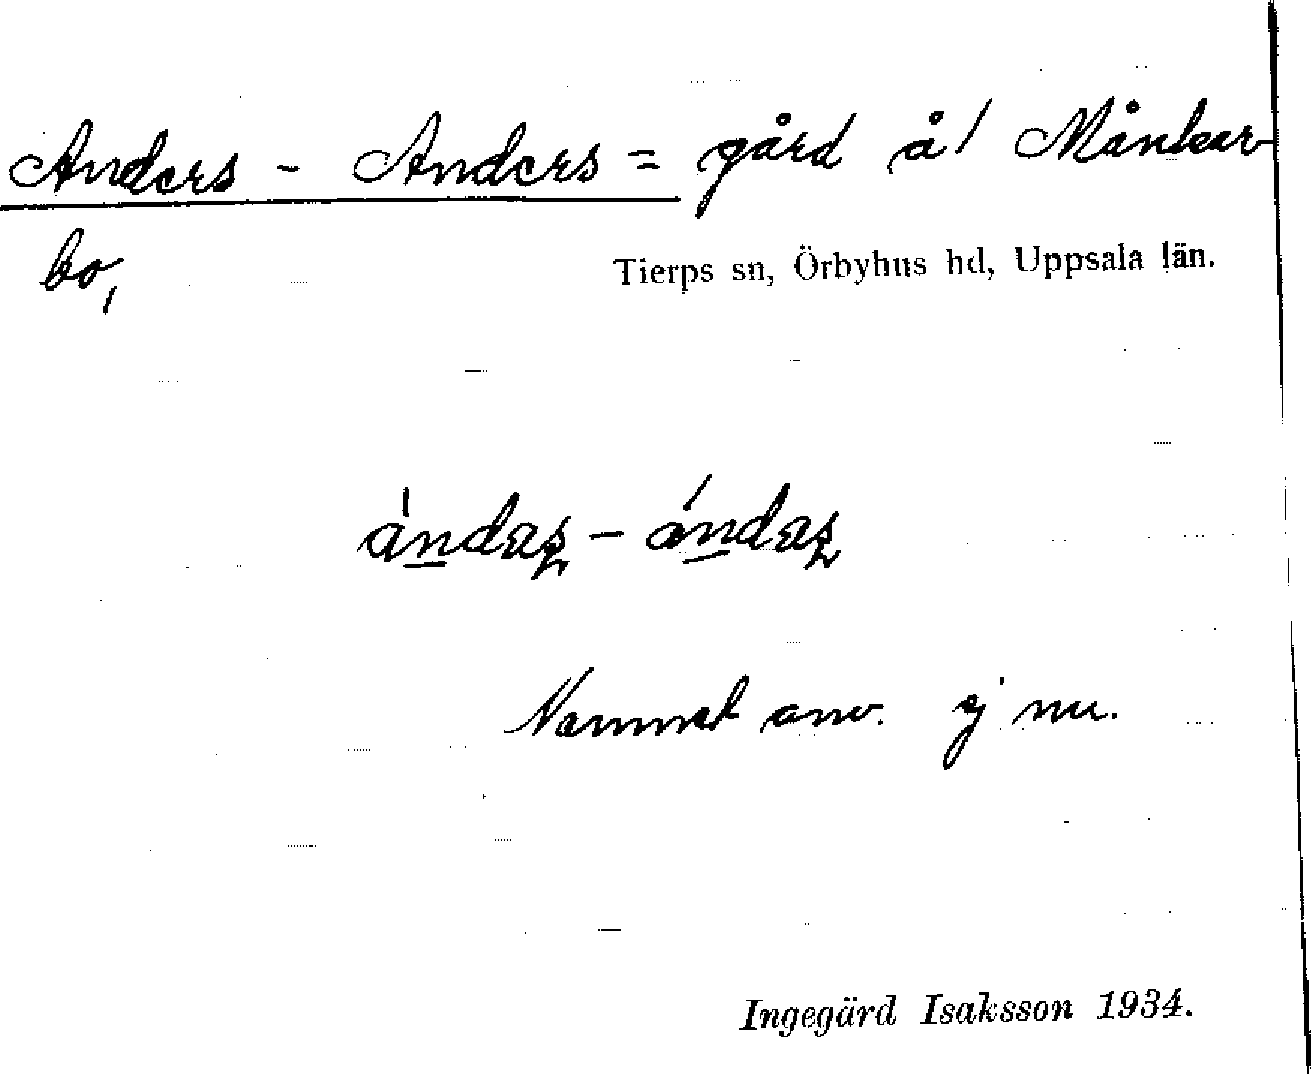 Anders - Anders = gård å / Månkar-
bo,
Tierps sn, Örbyhus hd, Uppsala län.
ándas - ándas
Namnet anv. ej nu.
Ingegärd Isaksson 1934.